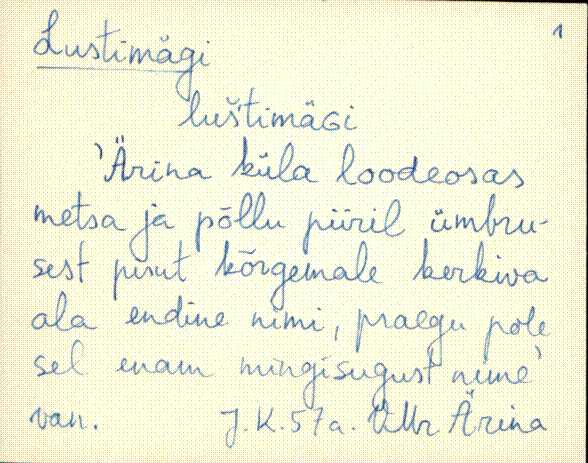 1
Lustimägi
luš'timäGi
'Ärina küla loodeosas
metsa ja põllu piiril ümbru-
sest pisut kõrgemale kerkiva
ala endine nimi, praegu pole
sel enam mingisugust nime'
van. J.K. 57a. VMr Ärina